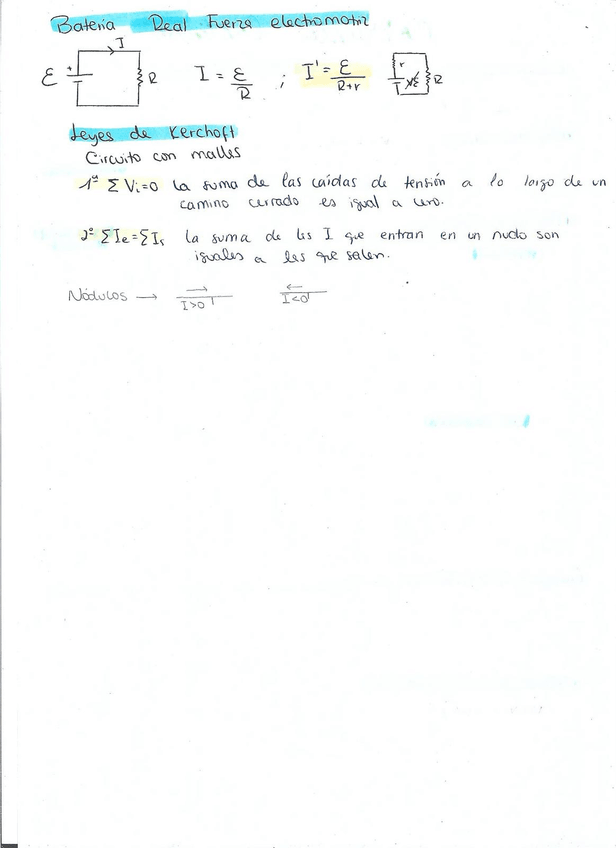 Batería Real Fuerza electromotriz
I
ε + R I = ε/R ; I' = ε/R+r r ε R
Leyes de Kerchoft
Circuito con malles
1ª Σ Vi=0 La suma de las caídas de tensión a lo largo de un
camino cerrado es igual a cero.
2ª Σ Ie = Σ Is la suma de las I que entran en un nudo son
iguales a las que salen.
Nódulos → → I>0 ← I<0